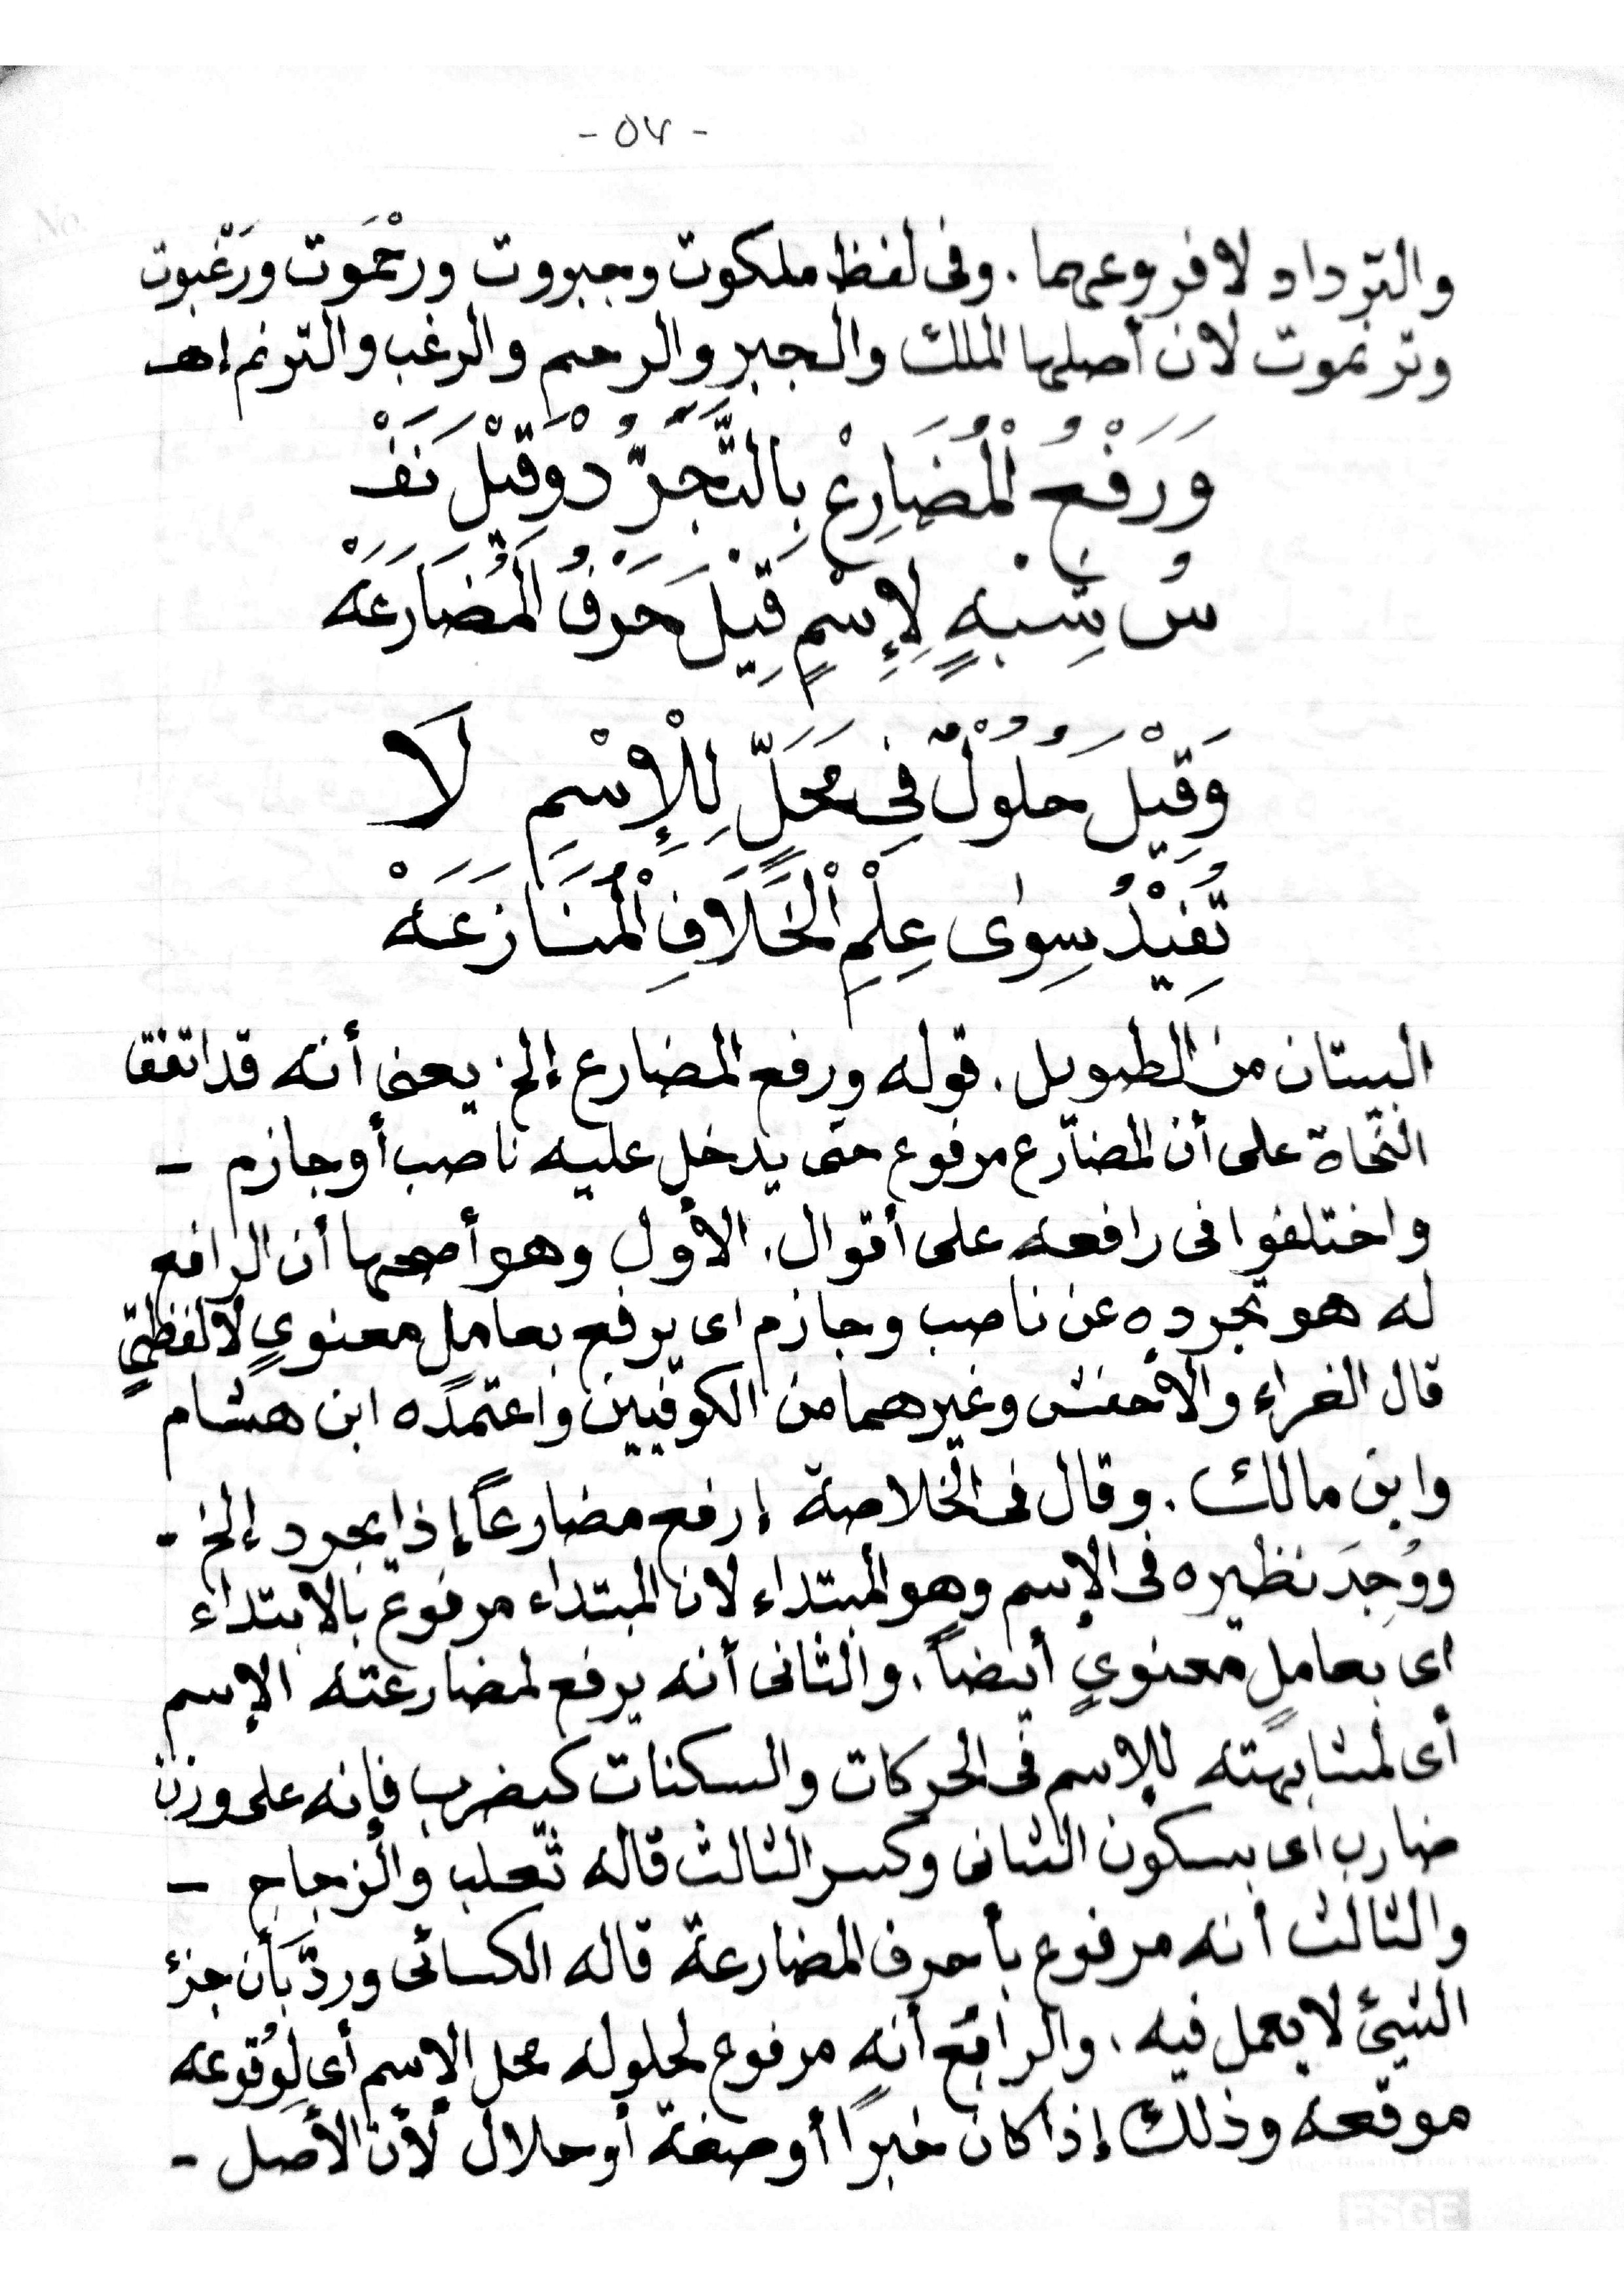 - ٥٧ -
والترداد لا فروعهما . وفى لفظ ملكوت وجبروت ورحْمَوت ورَغَبوت
وترنموت لان أصلها الملك والجبر والرحم والرغب والترنم إهـ
وَرَفْعُ الْمُضَارِعْ بِالتَّجَرُّدْ وَقِيْلَ نَفْـ
سُ شِبْهٍ لِإِسْمٍ قِيْلَ حَرْفُ الْمُضَارَعَهْ
وَقِيْلَ حُلُوْلٌ فِى مَحَلٍّ لِلْإِسْمِ لَا
تُفِيْدُ سِوٰى عِلْمِ الْخِلَافِ الْمُنَازَعَهْ
البيتان من الطويل . قوله ورفع المضارع إلخ يعنى أنه قد اتفق
النحاة على أن المضارع مرفوع حتى يدخل عليه ناصب أو جازم –
واختلفوا فى رافعه على أقوال . الأول وهو أصحها أن الرافع
له هو تجرده عن ناصب وجازم اى يرفع بعامل معنويٍ لا لفظيٍّ
قال الفراء والأخفش وغيرهما من الكوفيين واعتمده ابن هشام
وابن مالك . وقال فى الخلاصة إرفع مضارعاً إذا يجرد إلخ -
ووُجِدَ نظيره فى الإسم وهو المبتداء لان المبتداء مرفوع بالابتداء
اى بعاملٍ معنويٍ أيضاً . والثانى أنه يرفع لمضارعته الإسم
أى لمشابهته للإسم فى الحركات والسكنات كيضرب فإنه على وزن
ضارب اى بسكون الثانى وكسر الثالث قاله ثعلب والزجاج –
والثالث أنه مرفوع بأحرف المضارعة قاله الكسائى وردَّ بَأن جزءَ
الشيئ لا يعمل فيه . والرابع أنه مرفوع لحلوله محل الإسم أى لِوُقوعه
موقعه وذلك إذا كان خبرًا أو صفة أو حلال لأن الأصل -